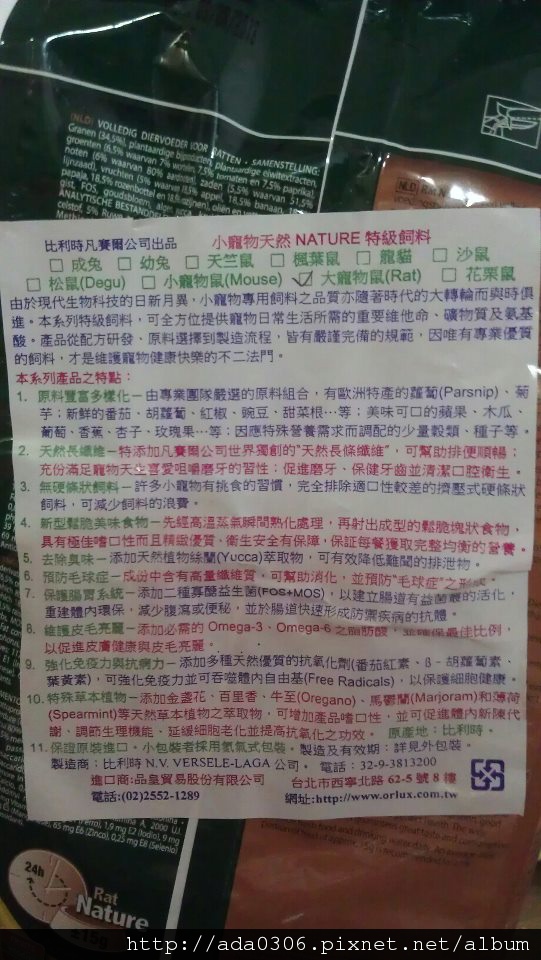 (NLD) VOLLEDIG DIERVOEDER VOOR RATTEN - SAMENSTELLING:
Granen (34,5%), plantaardige bijproducten, plantaardige eiwitextracten,
groenten (6,5% waarvan 7% wortelen, 7,5% tomaten en 7,5% paprika)
noten (6% waarvan 80% aardnoten), zaden (5,5% waarvan 51,5%
lijnzaad), vruchten (3% waarvan 18,5% appel, 18,5% banaan,
papaja, 18,5% rozenbottel en 18,5% rozijnen),
gist, FOS,
ANALYTISCHE BESTANDDELEN
celstof, 5% Ruwe
比利時凡賽爾公司出品 小寵物天然 NATURE 特級飼料
□ 成兔 □ 幼兔 □ 天竺鼠 □ 楓葉鼠 □ 龍貓 □ 沙鼠
□ 松鼠(Degu) □ 小寵物鼠(Mouse) ☑ 大寵物鼠(Rat) □ 花栗鼠
由於現代生物科技的日新月異，小寵物專用飼料之品質亦隨著時代的大轉輪而與時俱
進。本系列特級飼料，可全方位提供寵物日常生活所需的重要維他命、礦物質及氨基
酸。產品從配方研發、原料選擇到製造流程，皆有嚴謹完備的規範，因唯有專業優質
的飼料，才是維護寵物健康快樂的不二法門。
本系列產品之特點：
1. 原料豐富多樣化－由專業團隊嚴選的原料組合，有歐洲特產的蘿蔔(Parsnip)、菊
芋；新鮮的番茄、胡蘿蔔、紅椒、豌豆、甜菜根…等；美味可口的蘋果、木瓜、
葡萄、香蕉、杏子、玫瑰果…等；因應特殊營養需求而調配的少量穀類、種子等。
2. 天然長纖維－特添加凡賽爾公司世界獨創的"天然長條纖維"，可幫助排便順暢；
充份滿足寵物天生喜愛咀嚼磨牙的習性；促進磨牙、保健牙齒並清潔口腔衛生。
3. 無硬條狀飼料－許多小寵物有挑食的習慣，完全排除適口性較差的擠壓式硬條狀
飼料，可減少飼料的浪費。
4. 新型鬆脆美味食物－先經高溫蒸氣瞬間熟化處理，再射出成型的鬆脆塊狀食物，
具有極佳嗜口性而且精緻優質、衛生安全有保障，保証每餐獲取完整均衡的營養。
5. 去除臭味－添加天然植物絲蘭(Yucca)萃取物，可有效降低難聞的排泄物。
6. 預防毛球症－成份中含有高量纖維質，可幫助消化，並預防"毛球症"之形成。
7. 保護腸胃系統－添加二種寡醣益生菌(FOS+MOS)，以建立腸道有益菌叢的活化，
重建體內環保，減少腹瀉或便秘，並於腸道快速形成防禦疾病的抗體。
8. 維護皮毛亮麗－添加必需的 Omega-3、Omega-6 之脂肪酸，並確保最佳比例，
以促進皮膚健康與皮毛亮麗。
9. 強化免疫力與抗病力－添加多種天然優質的抗氧化劑(番茄紅素、ß－胡蘿蔔素、
葉黃素)，可強化免疫力並可吞噬體內自由基(Free Radicals)，以保護細胞健康。
10. 特殊草本植物－添加金盞花、百里香、牛至(Oregano)、馬鬱蘭(Marjoram)和薄荷
(Spearmint)等天然草本植物之萃取物，可增加產品嗜口性，並可促進體內新陳代
謝、調節生理機能、延緩細胞老化並提高抗氧化之功效。 原產地：比利時。
11. 保證原裝進口。小包裝者採用氮氣式包裝。製造及有效期：詳見外包裝。
製造商：比利時 N.V. VERSELE-LAGA 公司。 電話：32-9-3813200
進口商:品皇貿易股份有限公司 台北市西寧北路 62-5 號 8 樓
電話:(02)2552-1289 網址:http://www.orlux.com.tw
24h
Rat
Nature
http://ada0306.pixnet.net/album